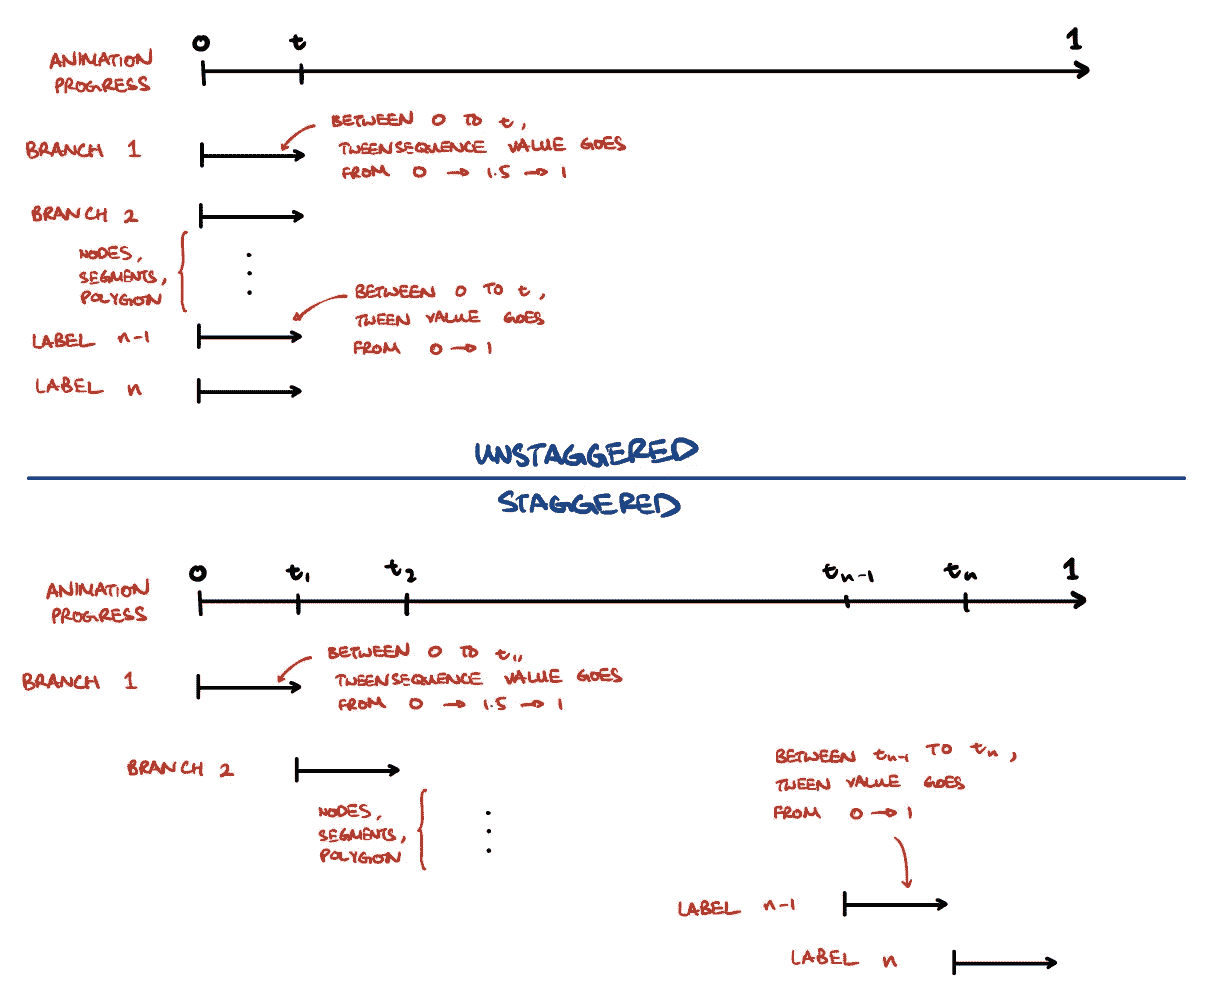 0 t 1
ANIMATION
PROGRESS
BRANCH 1
BETWEEN 0 TO t,
TWEENSEQUENCE VALUE GOES
FROM 0 → 1.5 → 1
BRANCH 2
NODES,
SEGMENTS,
POLYGON
BETWEEN 0 TO t,
TWEEN VALUE GOES
FROM 0 → 1
LABEL n-1
LABEL n
UNSTAGGERED
STAGGERED
0 t₁ t₂ tₙ₋₁ tₙ 1
ANIMATION
PROGRESS
BRANCH 1
BETWEEN 0 TO t₁,
TWEENSEQUENCE VALUE GOES
FROM 0 → 1.5 → 1
BRANCH 2
NODES,
SEGMENTS,
POLYGON
BETWEEN tₙ₋₁ TO tₙ,
TWEEN VALUE GOES
FROM 0 → 1
LABEL n-1
LABEL n